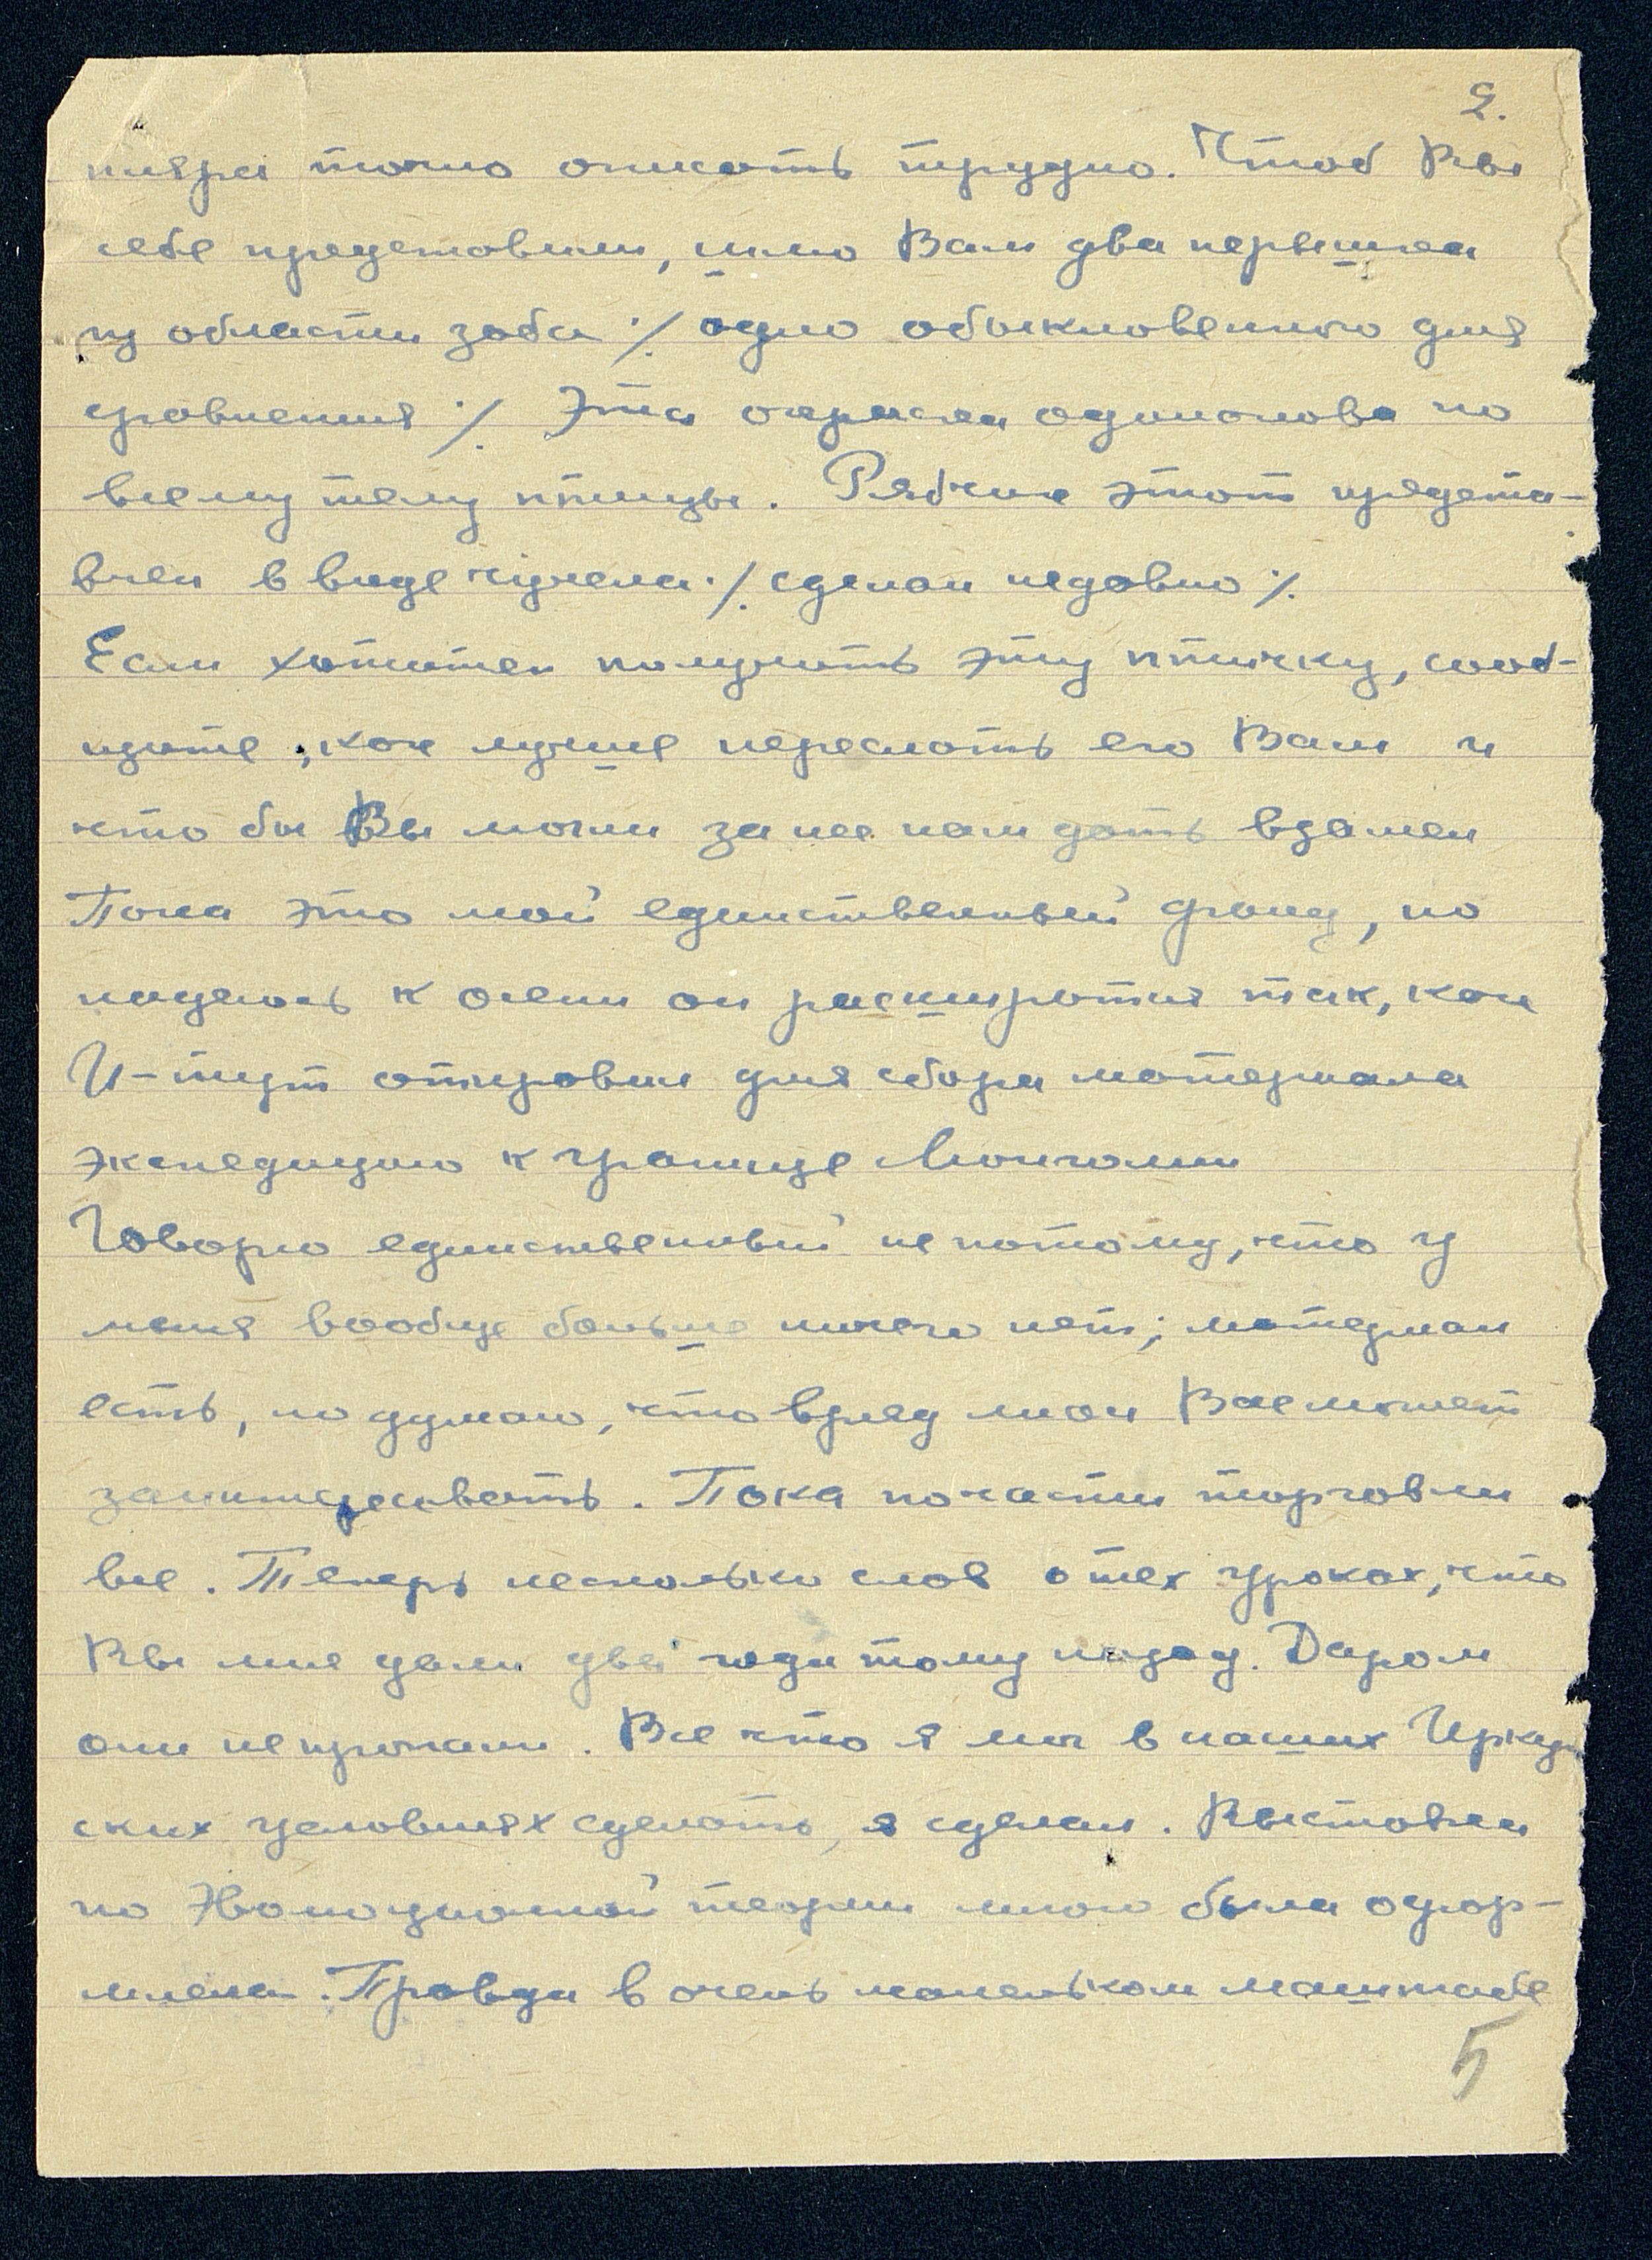 2.
пляра точно описать трудно. Чтоб Вы
себе представили, шлю Вам два перышка
из области зоба ./. одно обыкновенного для
сравнения ./. Эта окраска одинакова по
всему телу птицы. Рябчик этот предста-
влен в виде чучела ./. сделан недавно ./.
Если хотите получить эту птичку, сооб-
щите, как лучше переслать его Вам и
что бы Вы могли за нее нам дать взамен
Пока это мой единственный фонд, но
надеюсь к осени он расширится так, как
И-тут отправил для сбора материала
экспедицию к границе Монголии
Говорю единственный не потому, что у
меня вообще больше ничего нет; материал
есть, но думаю, что вряд ли он Вас может
заинтересовать. Пока по части торговли
все. Теперь несколько слов о тех уроках, что
Вы мне дали два года тому назад. Даром
они не пропали. Все что я мог в наших Иркут
ских условиях сделать, я сделал. Выставка
по Эволюционной теории мною была офор-
млена. Правда в очень маленьком маштабе
5